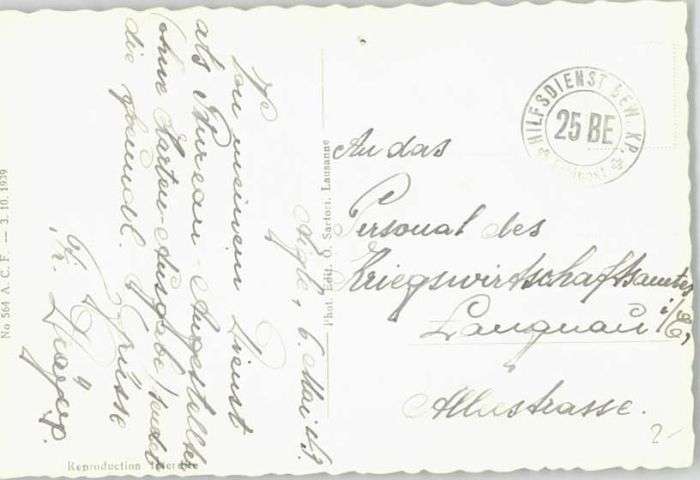 Aigle, 6. Mai 43.
Von meinem Dienst
als Bureau-Angestellter
(ohne Karten-Ausgabe) sendet
die freundl. Grüsse
Fr.
No 564 A. C. F. — 3. 10. 1939
Phot. Edit. O. Sartori, Lausanne
Reproduction interdite
HILFSDIENST BEW. KP.
25 BE
An das
Personal des
Kriegswirtschaftsamtes
Langnau i/E,
Alleestrasse.
2-